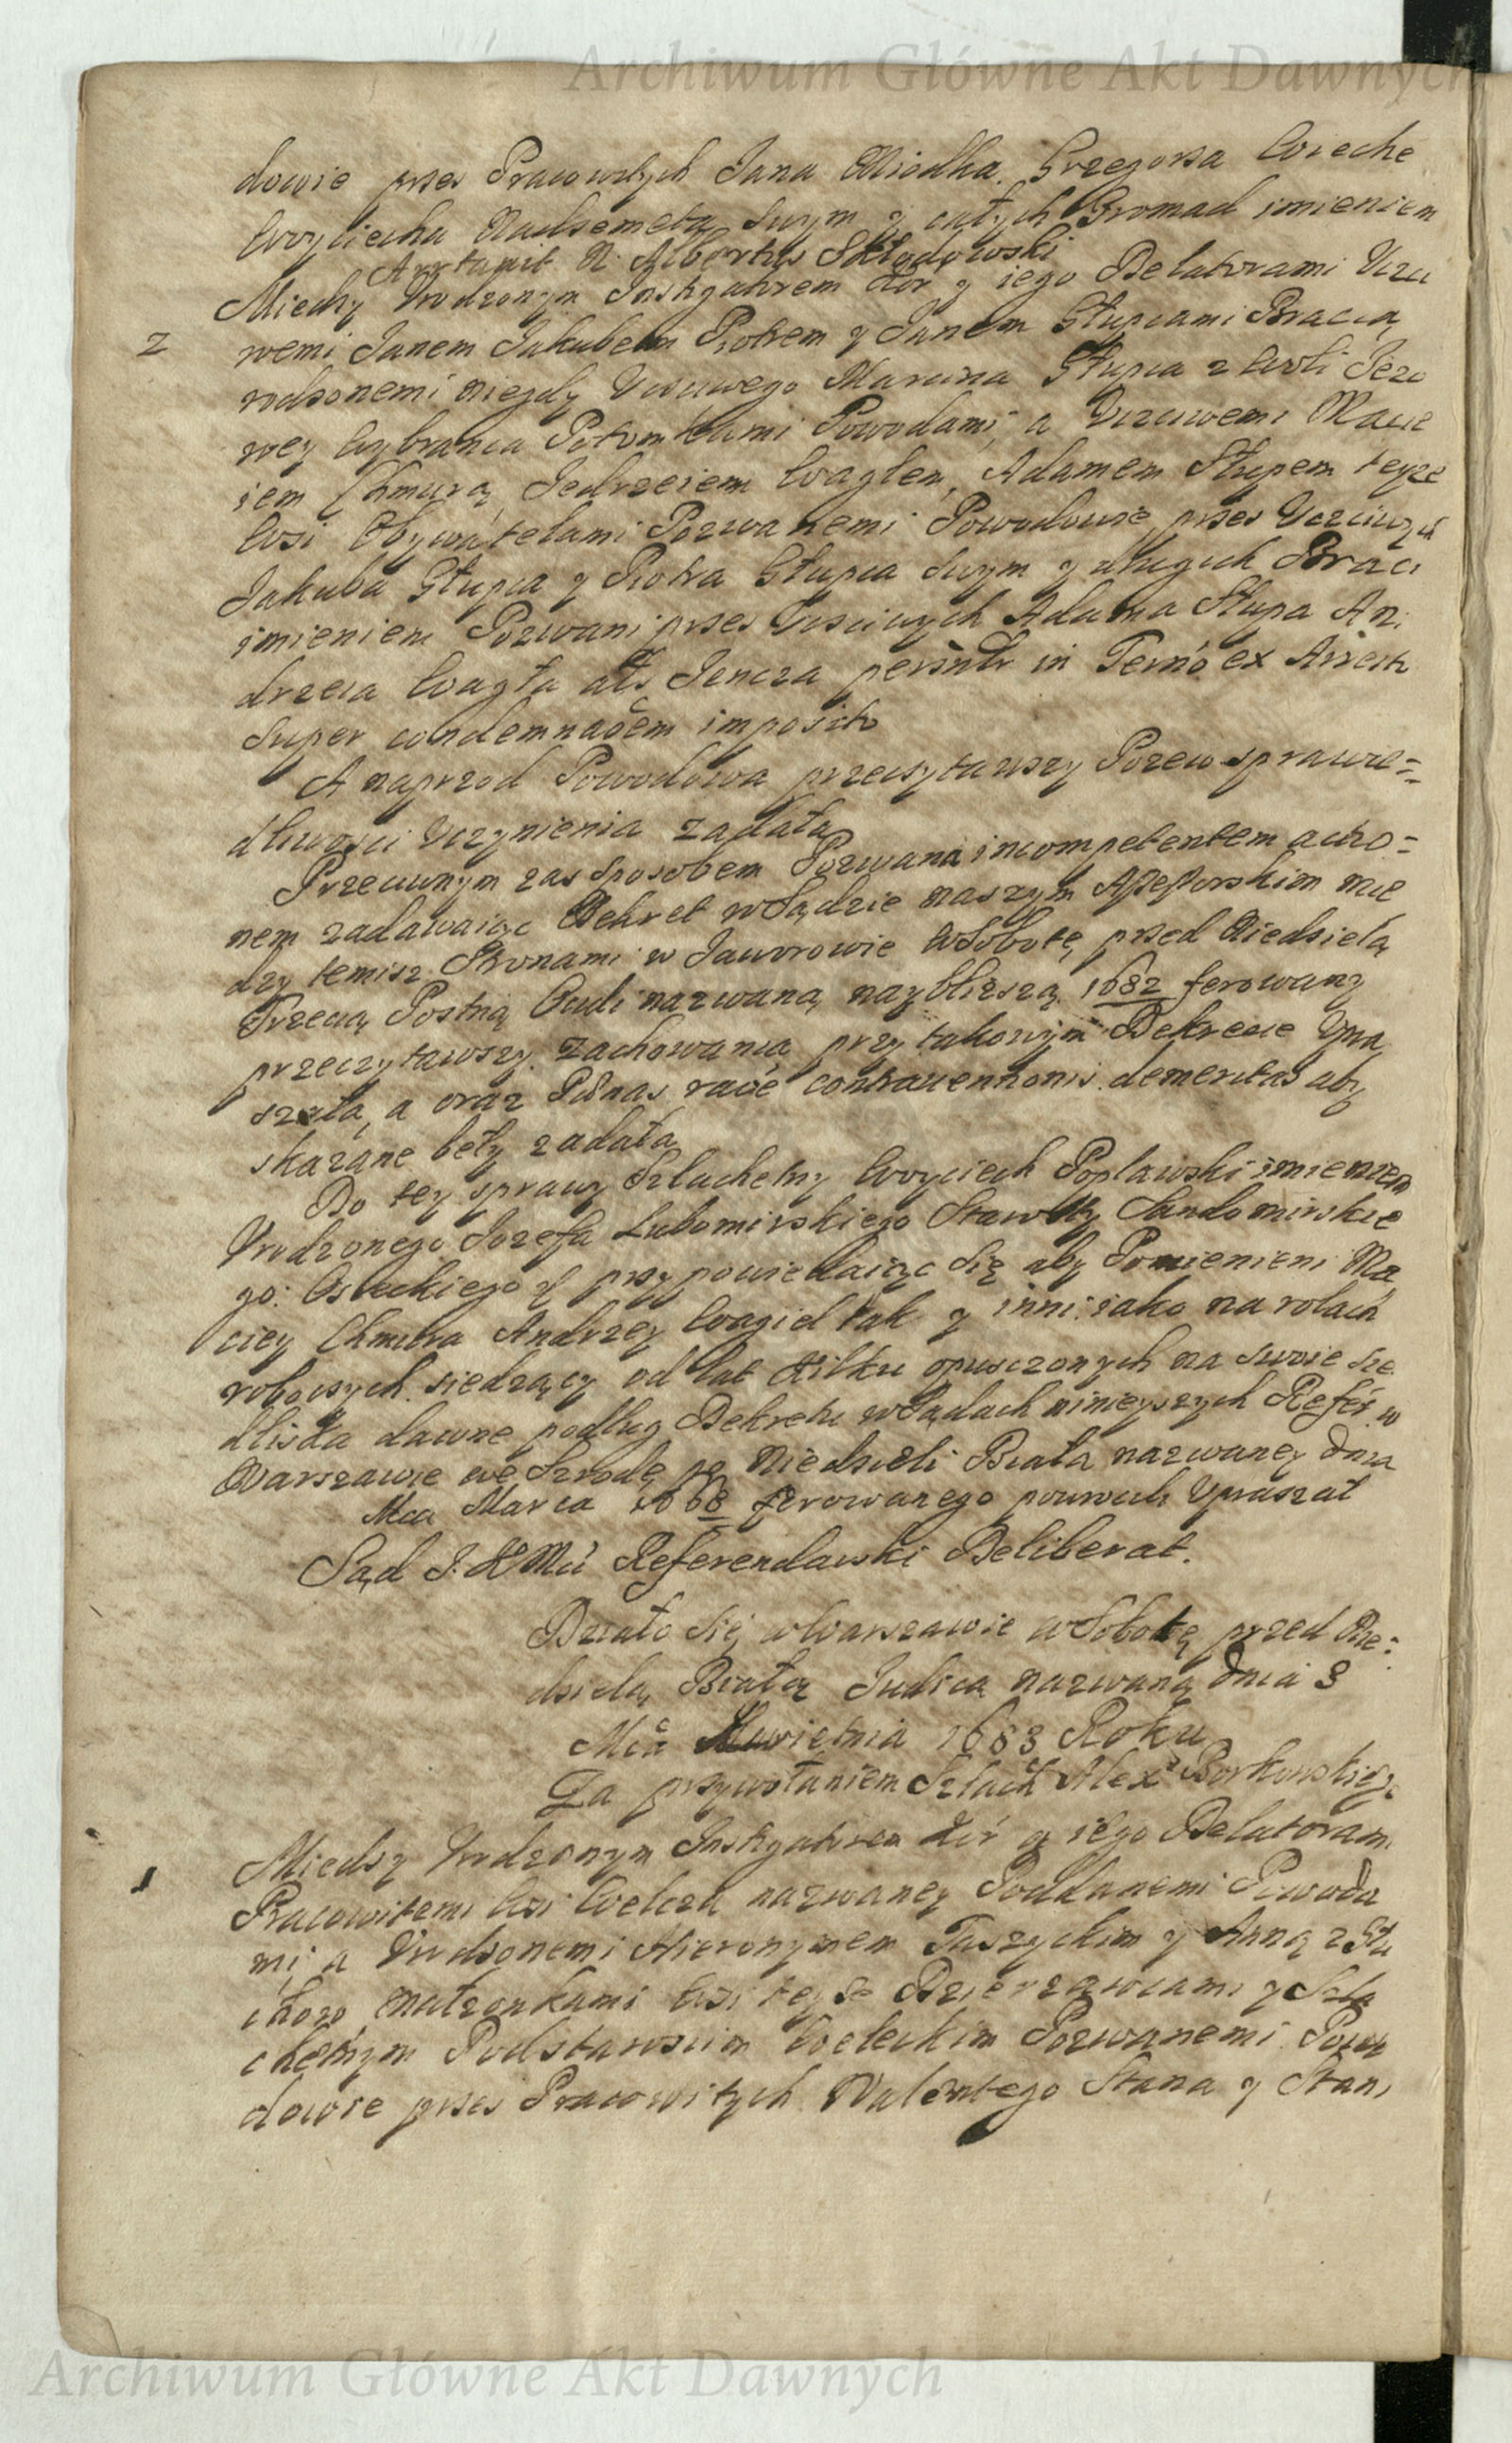 Archiwum Główne Akt Dawnych
dowie przez Pracowitych Jana Miodka. Grzegorza Wieche
Woyciecha swym y całych Gromad imieniem
Arrtavit N. Albertus Skłodowski
2
Miedzy Urodzonym Instygatorem Kor y iego Delatorami Uczci
wemi Janem Jakubem Piotrem y Janem Głupcami Bracią
rodzonemi niegdy Uczciwego Marcina Głupca z Woli Jezo
wey Wybranca Potomkami Powodami, a Uczciwemi Macie
iem Chmurą Jedrzeiem Wagłem, Adamem Słupem teyze
Wsi Obywatelami Pozwanemi Powodowie przez Uczciwych
Jakuba Głupca y Piotra Głupca swym y drugich Braci
imieniem Pozwani przez Uczciwych Adama Słupa An
drzeia Wagła als Jencza personlr in Termo ex Arresto
super condemnaoem imposito
A naprzod Powodowa przeczytawszy Pozew sprawie=
dliwosci Uczynienia ządała
Przeciwnym zas sposobem Pozwana incompetentem actio=
nem zadawaiąc Dekret w Sądzie naszym Assessorskim mie
dzy temisz Stronami w Jaworowie w Sobotę przed Niedzielą
Trzecią Postną Oculi nazwaną nayblizszą 1682 ferowany
przeczytawszy. zachowania przy takowym Dekrecie Upra
szała, a oraz Pænas raoe contrauentionis demeritas aby
skazane beły ządała
Do tey sprawy Szlachetny Woyciech Popławski imieniem
Urodzonego Jozefa Lubomirskiego Starosty Sandomirskie
go: Osieckiego przypowiedaiąc się aby Pomienieni Ma
ciey Chmura Andrzey Wągiel tak y inni iako na rolach
robocszych siedzący od lat kilku opusczonych na swoie sie
dliska dawne podług Dekretu w Sądach ninieyszych Refer: w
Warszawie we Szrodę po Niedzieli Biała nazwaney dnia
Mca Marca 1668 ferowanego powrocili Upraszał
Sąd J. K Mci Referendarski Deliberat.
Działo się w Warszawie w Sobotę przed Nie=
dzielą Białą Judica nazwaną dnia 3
Mca Kwietnia 1683 Roku
Za przywołaniem Szlach Alex Borkowskieg
1
Miedzy Urodzonym Instygatorem Kor y iego Delatorami
Pracowitemi Wsi Wełcza nazwaney Poddanemi Powoda
mi, a Urodzonemi Hieronymem Taszyckim y Anną z Stu
małzonkami Wsi teyze Dzierzawcami y Szla
chetnym Podstarościm Wełeckim Pozwanemi Powo
dowie przez Pracowitych Walentego Stana y Stani
Archiwum Główne Akt Dawnych